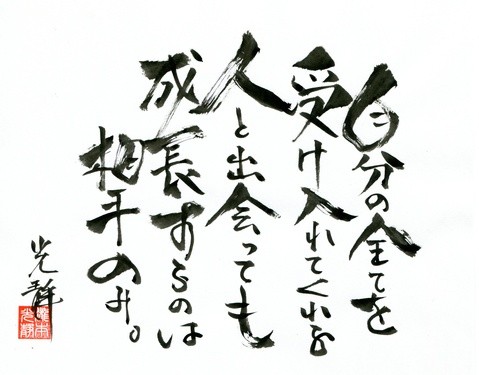 自分の全てを
受け入れてくれる
人と出会っても
成長するのは
相手のみ。
光靜